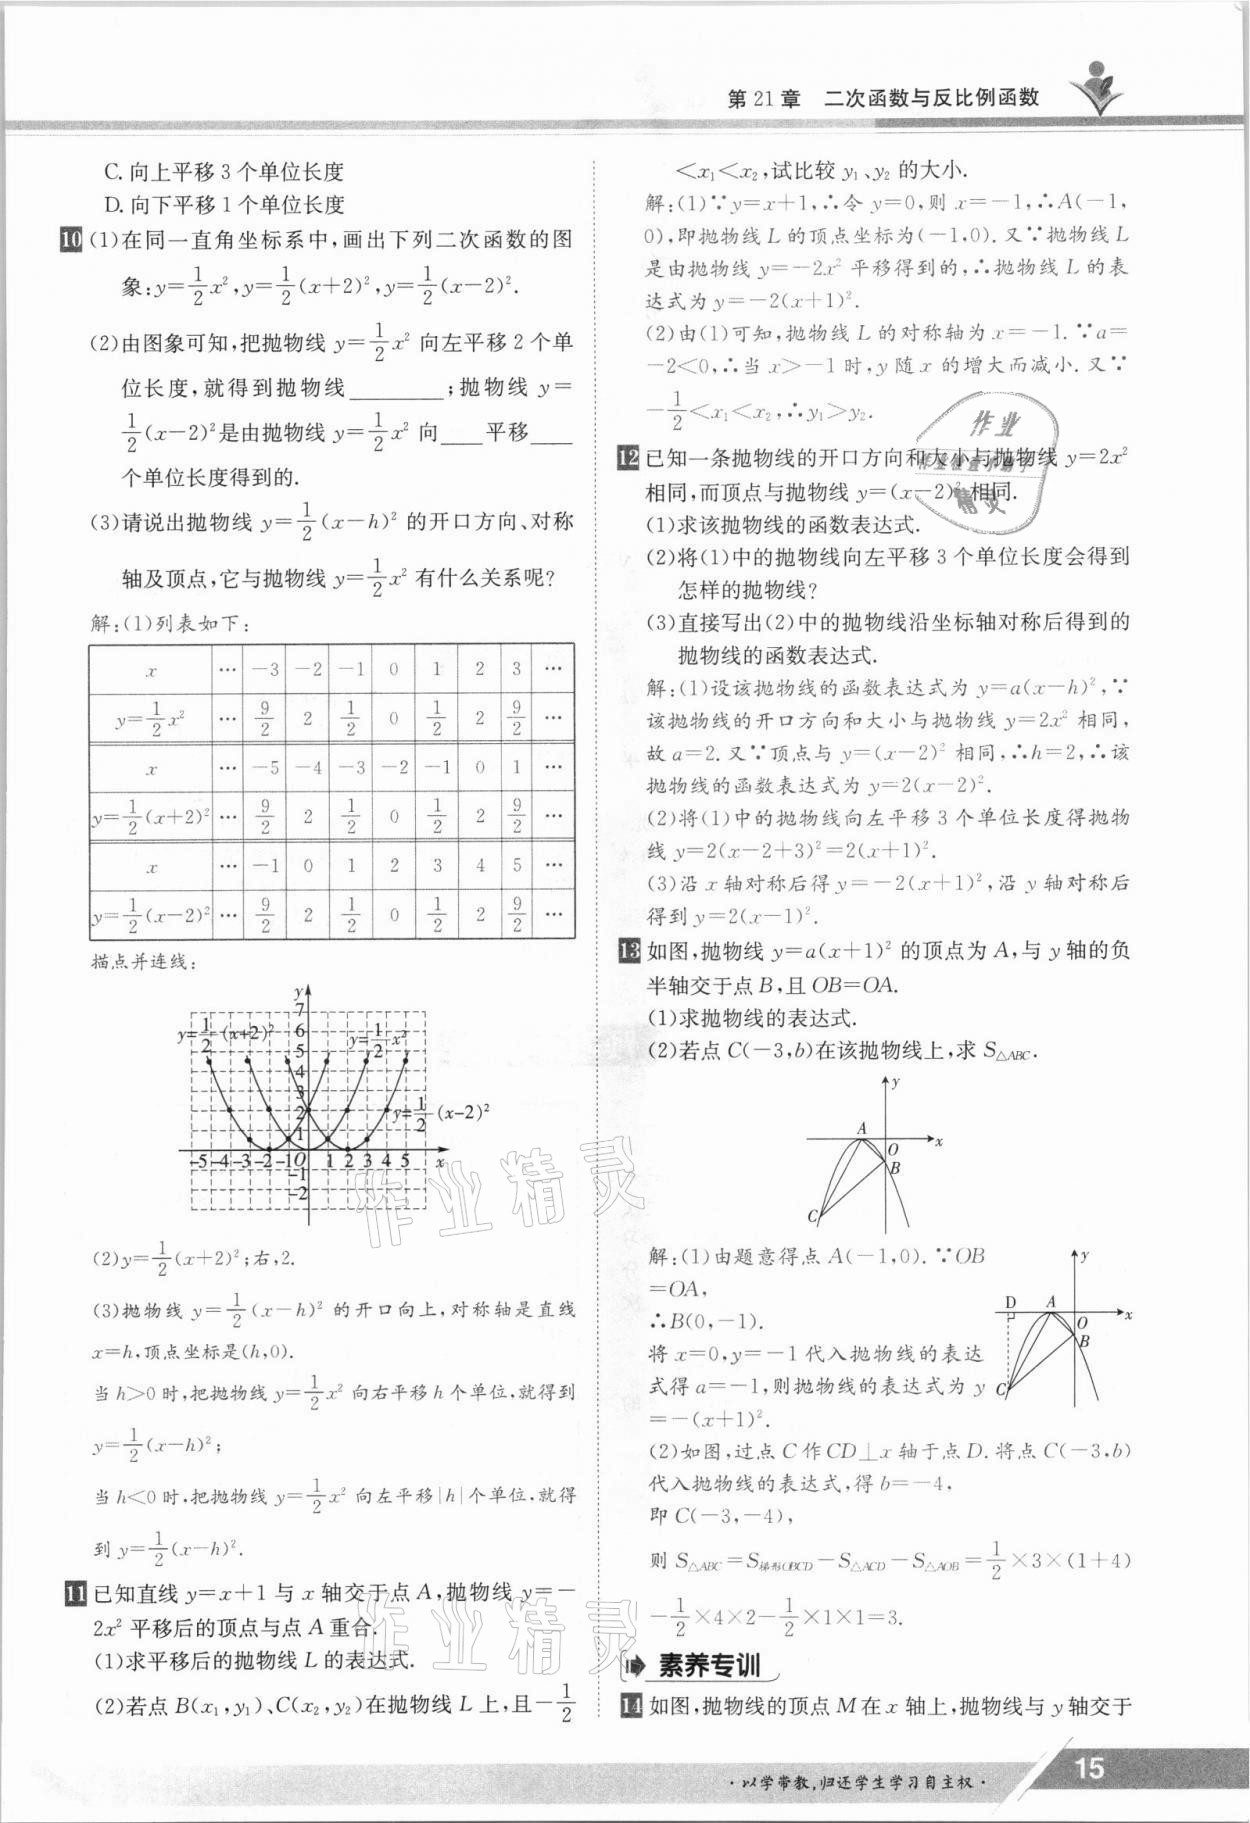 第 21 章　二次函数与反比例函数
C. 向上平移 3 个单位长度
D. 向下平移 1 个单位长度
10 (1)在同一直角坐标系中,画出下列二次函数的图
象:y=1/2x²,y=1/2(x+2)²,y=1/2(x-2)².
(2)由图象可知,把抛物线 y=1/2x² 向左平移 2 个单
位长度,就得到抛物线________;抛物线 y=
1/2(x-2)²是由抛物线 y=1/2x² 向___平移___
个单位长度得到的.
(3)请说出抛物线 y=1/2(x-h)² 的开口方向、对称
轴及顶点,它与抛物线 y=1/2x² 有什么关系呢?
解:(1)列表如下:
x … -3 -2 -1 0 1 2 3 …
y=1/2x² … 9/2 2 1/2 0 1/2 2 9/2 …
x … -5 -4 -3 -2 -1 0 1 …
y=1/2(x+2)² … 9/2 2 1/2 0 1/2 2 9/2 …
x … -1 0 1 2 3 4 5 …
y=1/2(x-2)² … 9/2 2 1/2 0 1/2 2 9/2 …
描点并连线:
y
7
y=1/2(x+2)² 6 y=1/2x²
5
4
3
2 y=1/2(x-2)²
1
-5 -4 -3 -2 -1 O 1 2 3 4 5 x
-1
-2
(2)y=1/2(x+2)²;右,2.
(3)抛物线 y=1/2(x-h)² 的开口向上,对称轴是直线
x=h,顶点坐标是(h,0).
当 h>0 时,把抛物线 y=1/2x² 向右平移 h 个单位,就得到
y=1/2(x-h)²;
当 h<0 时,把抛物线 y=1/2x² 向左平移|h|个单位,就得
到 y=1/2(x-h)².
11 已知直线 y=x+1 与 x 轴交于点 A,抛物线 y=-
2x² 平移后的顶点与点 A 重合.
(1)求平移后的抛物线 L 的表达式.
(2)若点 B(x₁,y₁)、C(x₂,y₂)在抛物线 L 上,且-1/2
<x₁<x₂,试比较 y₁、y₂ 的大小.
解:(1)∵y=x+1,∴令 y=0,则 x=-1,∴A(-1,
0),即抛物线 L 的顶点坐标为(-1,0).又∵抛物线 L
是由抛物线 y=-2x² 平移得到的,∴抛物线 L 的表
达式为 y=-2(x+1)².
(2)由(1)可知,抛物线 L 的对称轴为 x=-1.∵a=
-2<0,∴当 x>-1 时,y 随 x 的增大而减小.又∵
-1/2<x₁<x₂,∴y₁>y₂.
12 已知一条抛物线的开口方向和大小与抛物线 y=2x²
相同,而顶点与抛物线 y=(x-2)² 相同.
(1)求该抛物线的函数表达式.
(2)将(1)中的抛物线向左平移 3 个单位长度会得到
怎样的抛物线?
(3)直接写出(2)中的抛物线沿坐标轴对称后得到的
抛物线的函数表达式.
解:(1)设该抛物线的函数表达式为 y=a(x-h)²,∵
该抛物线的开口方向和大小与抛物线 y=2x² 相同,
故 a=2.又∵顶点与 y=(x-2)² 相同,∴h=2,∴该
抛物线的函数表达式为 y=2(x-2)².
(2)将(1)中的抛物线向左平移 3 个单位长度得抛物
线 y=2(x-2+3)²=2(x+1)².
(3)沿 x 轴对称后得 y=-2(x+1)²,沿 y 轴对称后
得到 y=2(x-1)².
13 如图,抛物线 y=a(x+1)² 的顶点为 A,与 y 轴的负
半轴交于点 B,且 OB=OA.
(1)求抛物线的表达式.
(2)若点 C(-3,b)在该抛物线上,求 S△ABC.
y
A
O x
B
C
解:(1)由题意得点 A(-1,0).∵OB
=OA,
∴B(0,-1).
将 x=0,y=-1 代入抛物线的表达
式得 a=-1,则抛物线的表达式为 y
=-(x+1)².
y
D A
O x
B
C
(2)如图,过点 C 作 CD⊥x 轴于点 D.将点 C(-3,b)
代入抛物线的表达式,得 b=-4,
即 C(-3,-4),
则 S△ABC=S梯形OBCD-S△ACD-S△AOB=1/2×3×(1+4)
-1/2×4×2-1/2×1×1=3.
素养专训
14 如图,抛物线的顶点 M 在 x 轴上,抛物线与 y 轴交于
·以学带教,归还学生学习自主权·
15
作业
精灵
作业精灵
作业精灵